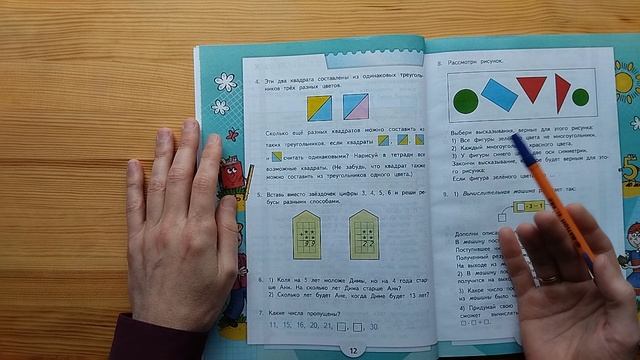 4. Эти два квадрата составлены из одинаковых треуголь-
ников трёх разных цветов.
Сколько ещё разных квадратов можно составить из
таких треугольников, если квадраты
и считать одинаковыми? Нарисуй в тетради все
возможные квадраты. (Не забудь, что квадрат также
можно составить из треугольников одного цвета.)
5. Вставь вместо звёздочек цифры 3, 4, 5, 6 и реши ре-
бусы разными способами.
6. 1) Коля на 5 лет моложе Димы, но на 4 года стар-
ше Ани. На сколько лет Дима старше Ани?
2) Сколько лет будет Ане, когда Диме будет 13 лет?
7. Какие числа пропущены?
11, 15, 16, 20, 21, , , 30.
12
8. Рассмотри рисунок.
Выбери высказывания, верные для этого рисунка:
1) Все фигуры цвета не многоугольники.
2) Каждый красного цвета.
3) У фигуры синего оси симметрии.
Закончи высказывание, будет верным для это-
го рисунка:
Если фигура зелёного цвета,
9. 1) Вычислительная машина так:
Дополни
В машину
Поступившее
Полученный
На выходе из
2) В машину
получится на
3) Какое число
из машины было
4) Придумай
сможет вычислять